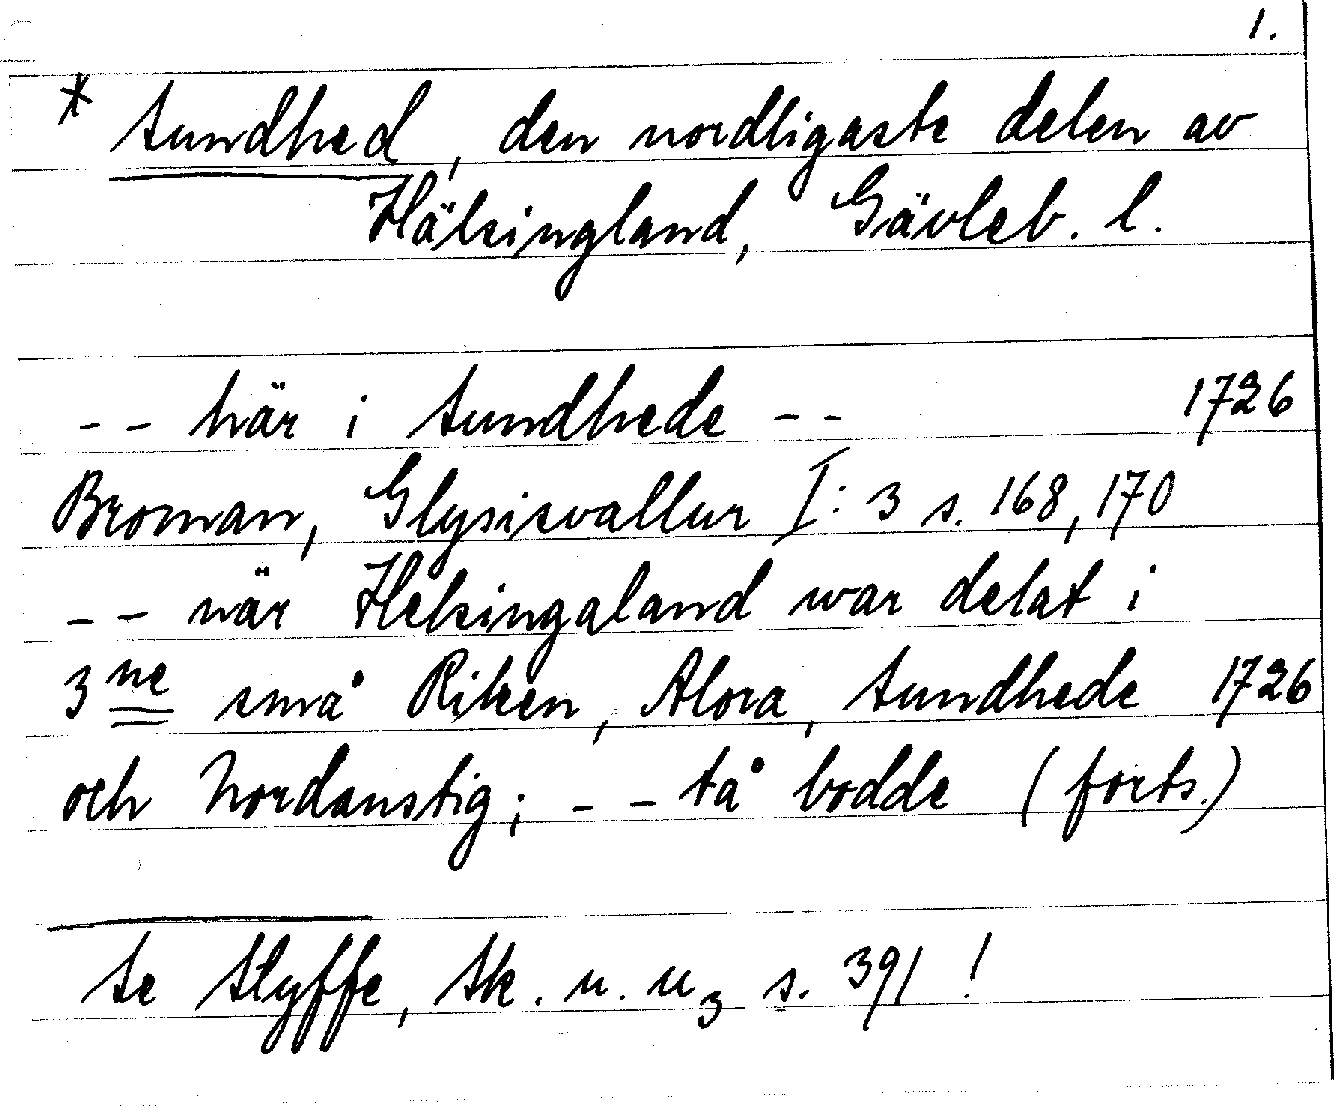 1.
* Sundhed, den nordligaste delen av
Hälsingland, Gävleb. l.
-- här i Sundhede -- 1726
Broman, Glysisvallur I:3 s. 168, 170
-- när Helsingaland war delat i
3ne små Riken, Alora, Sundhede 1726
och Nordanstig; -- tå bodde (forts.)
Se Styffe, Sk. u. u3 s. 391!